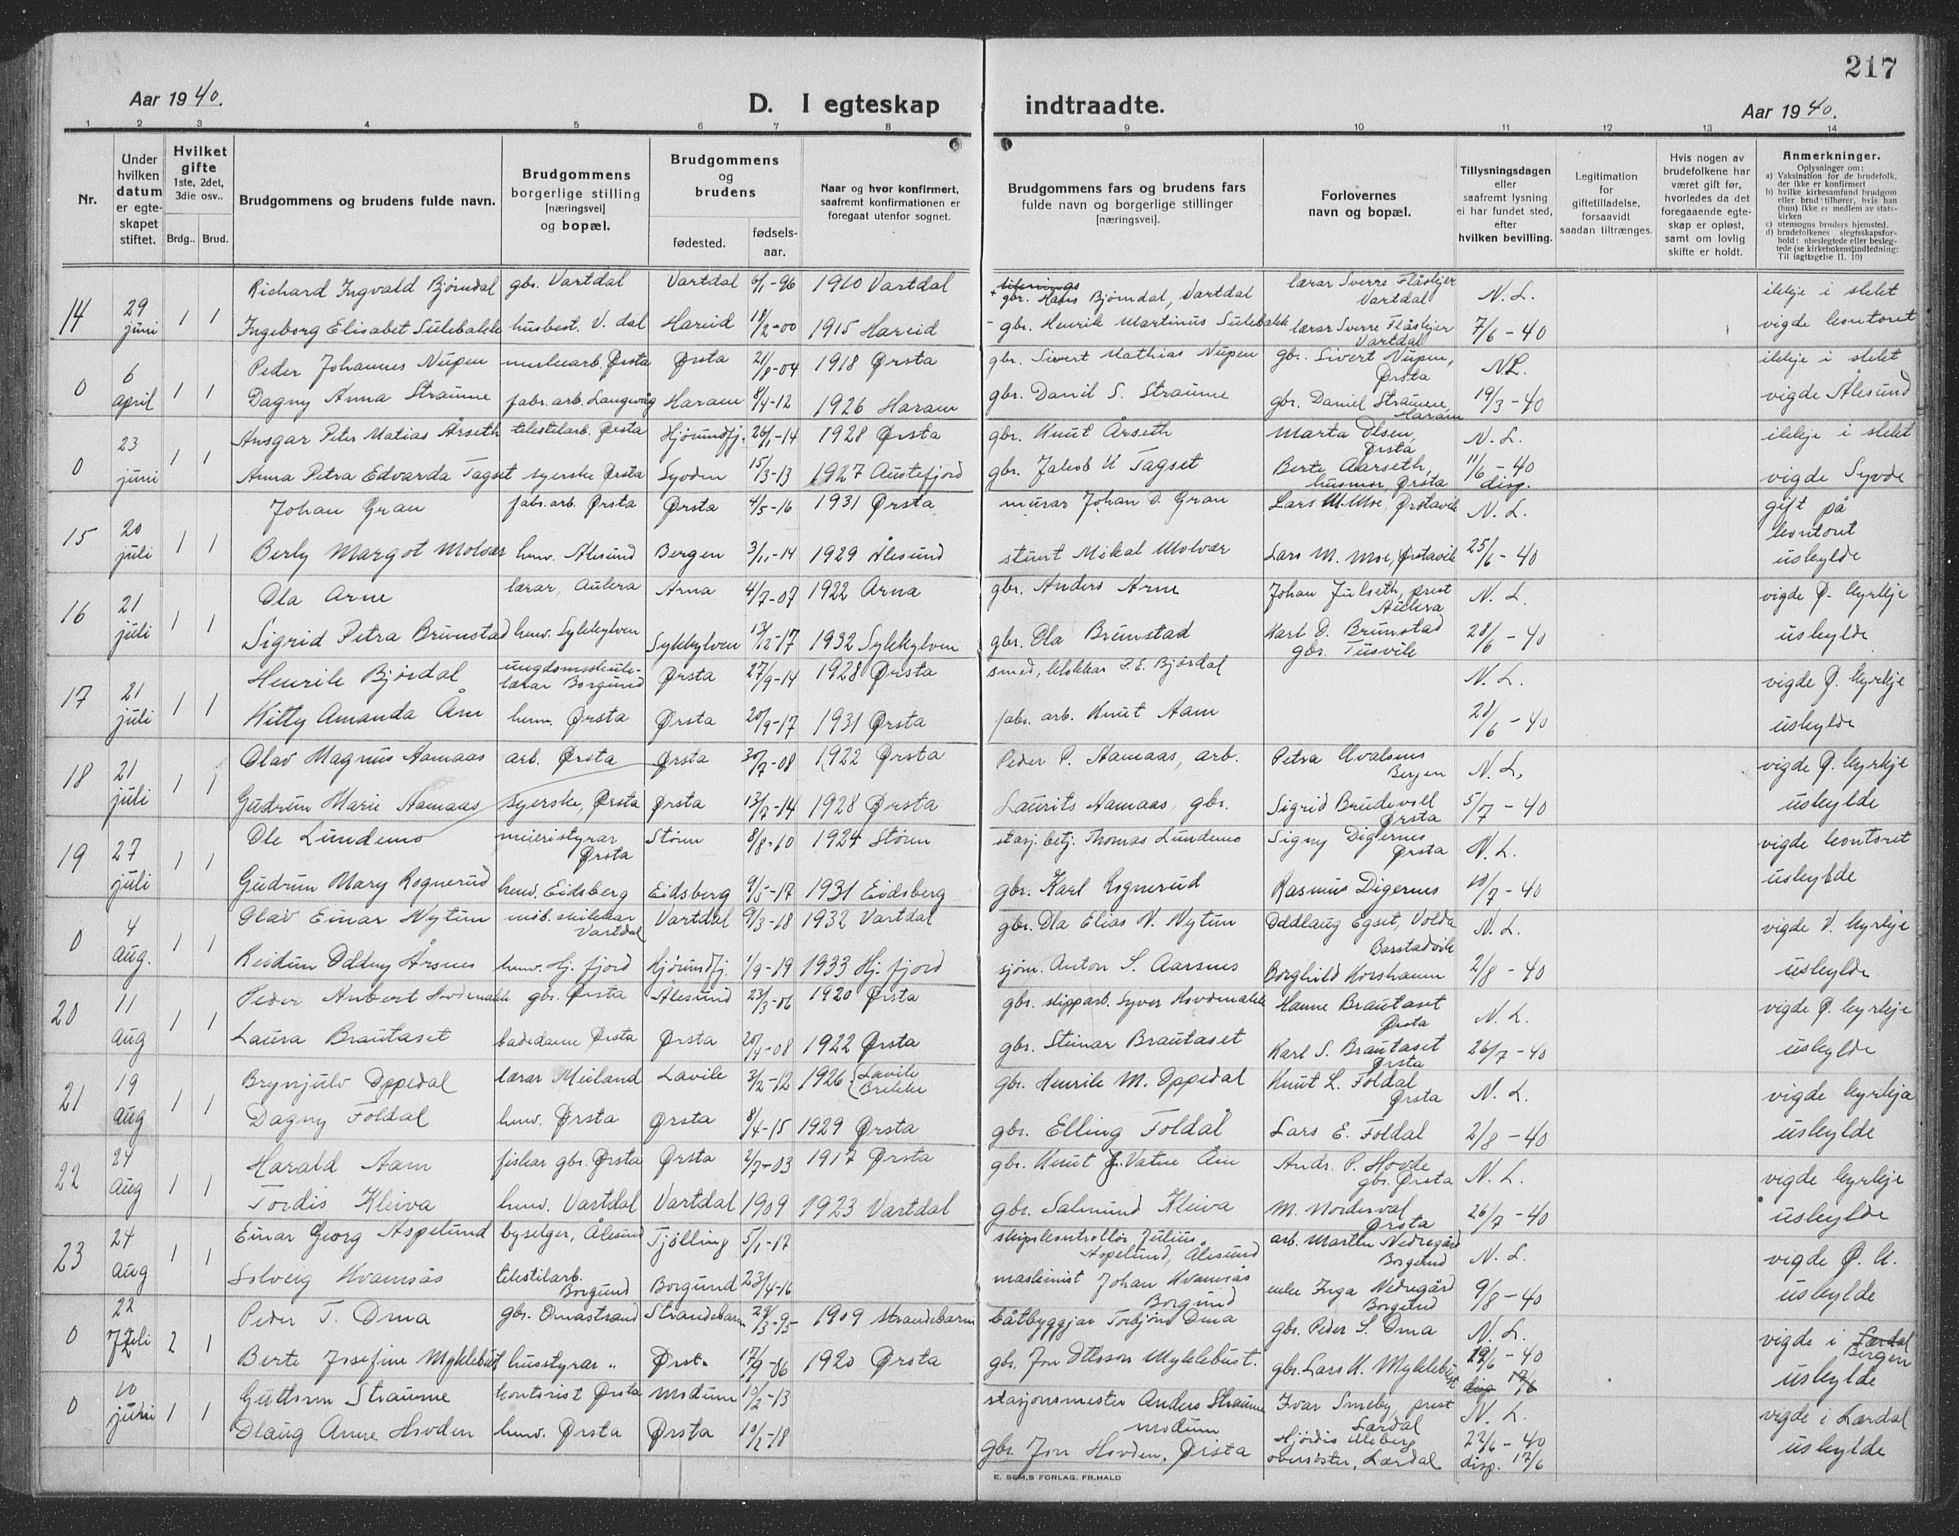 217
Aar 1940.
D. I egteskap
indtraadte.
Aar 1940.
1 2 3 4 5 6 7 8 9 10 11 12 13 14
Nr.
Under hvilken datum er egte-skapet stiftet.
Hvilket gifte 1ste, 2det, 3die osv..
Brdg.. Brud.
Brudgommens og brudens fulde navn.
Brudgommens borgerlige stilling [næringsvei] og bopæl.
Brudgommens og brudens
fødested.
fødsels-aar.
Naar og hvor konfirmert, saafremt konfirmationen er foregaat utenfor sognet.
Brudgommens fars og brudens fars fulde navn og borgerlige stillinger [næringsvei].
Forlovernes navn og bopæl.
Tillysningsdagen eller saafremt lysning ei har fundet sted, efter hvilken bevilling.
Legitimation for giftetilladelse, forsaavidt saadan tiltrænges.
Hvis nogen av brudefolkene har været gift før, hvorledes da det foregaaende egte-skap er opløst, samt om lovlig skifte er holdt.
Anmerkninger.
Oplysninger om:
a) Vaksination for de brudefolk, der ikke er konfirmert
b) hvilke kirkesamfund brudgom eller brud tilhører, hvis han (hun) ikke er medlem av stats-kirken
c) utensogns bruders hjemsted.
d) brudefolkenes slegtsskapsfor-hold: ubeslegtede eller besleg-tede (se kirkebokens indledning: Til iagttagelse II. 10)
14 29 juni 1 1
Richard Ingvald Bjørndal gbr. Vartdal Vartdal 6/1-96 1910 Vartdal + gbr. Hans Bjørndal, Vartdal lærar Sverre Flåskjer Vartdal N. L. ikkje i slekt
Ingeborg Elisabet Sulebakk husbest. V. dal Hareid 18/2-00 1915 Hareid gbr. Henrik Martinus Sulebakk lærar Sverre Flåskjer Vartdal 7/6-40 vigde kontoret
0 6 april 1 1
Peder Johannes Nupen Ørsta Ørsta 21/8-04 1918 Ørsta gbr. Sivert Mathias Nupen gbr. Sivert Nupen, Ørsta N.L. ikkje i slekt
Dagny Anna Straume fabr. arb. Langevåg Haram 4/4-12 1926 Haram gbr. Daniel S. Straume gbr. Daniel Straume, Haram 19/3-40 vigde Ålesund
0 23 juni 1 1
Ansgar Peter Matias Årseth tekstilarb. Ørsta Hjørundfj. 26/1-14 1928 Ørsta gbr. Knut Årseth Marta Olsen, Ørsta N. L. ikkje i slekt
Anna Petra Edvarda Tagset syerske Ørsta Syvden 15/3-13 1927 Austefjord gbr. Jakob K Tagset Berte Aarseth, husmor, Ørsta 11/6-40 disp. vigde Syvde
15 20 juli 1 1
Johan Gran fabr. arb. Ørsta Ørsta 4/5-16 1931 Ørsta murar Johan D. Gran Lars M. Moe, Ørstavik N. L. gift på kontoret
Berly Margot Molvær heim. Ålesund Bergen 3/11-14 1929 Ålesund stuert Mikal Molvær Lars M. Moe, Ørstavik 25/6-40 uskylde
16 21 juli 1 1
Ola Arne lærar, Aukra Arna 4/7-07 1922 Arna gbr. Anders Arne Johan Julseth, prest Aukra N. L. vigde Ø. kyrkje
Sigrid Petra Brunstad heim. Sykkylven Sykkylven 13/12-17 1932 Sykkylven gbr. Ola Brunstad Karl D. Brunstad gbr. Tusvik 28/6-40 uskylde
17 21 juli 1 1
Henrik Bjørdal ungdomsskule-lærar Borgund Ørsta 27/9-14 1928 Ørsta smed, klokkar P. E. Bjørdal N. L. vigde Ø. kyrkje
Kitty Amanda Åm heim. Ørsta Ørsta 20/9-17 1931 Ørsta fabr. arb. Knut Aam 28/6-40 uskylde
18 21 juli 1 1
Olav Magnus Aamaas arb. Ørsta Ørsta 30/7-08 1922 Ørsta Peder P. Aamaas, arb. Petra Bergen N. L. vigde Ø. kyrkje
Gudrun Marie Aamaas syerske, Ørsta Ørsta 13/7-14 1928 Ørsta Laurits Aamaas, gbr. Sigrid Brudevoll Ørsta 5/7-40 uskylde
19 27 juli 1 1
Ole Lundemo meieristyrar Ørsta Støren 8/8-10 1924 Støren stasj. betj. Thomas Lundemo Signy Digernes Ørsta N. L. vigde kontoret
Gudrun Mary Rognerud heim. Eidsberg Eidsberg 9/5-17 1931 Eidsberg gbr. Karl Rognerud Rasmus Digernes 10/7-40 uskylde
0 4 aug. 1 1
Olav Einar Nytun møb. snikkar Vartdal Vartdal 9/3-18 1932 Vartdal gbr. Ola Elias N. Nytun Oddlaug Egset, Volda N. L. vigde V. kyrkje
Reidun Oddny Årsnes heim. Hj. fjord Hjørundfj. 1/9-19 1933 Hj. fjord sjøm. Anton S. Aarsnes Barstadvik Borghild Korshamn 2/8-40 uskylde
20 11 aug 1 1
Peder Anbert Hovdenakk gbr. Ørsta Ålesund 23/3-06 1920 Ørsta gbr. skipparb. Syver Hovdenakk Hanne Brautaset Ørsta N. L. vigde Ø. kyrkje
Laura Brautaset badedame Ørsta Ørsta 20/4-08 1922 Ørsta gbr. Steinar Brautaset Karl S. Brautaset Ørsta 26/7-40 uskylde
21 19 aug 1 1
Brynjulv Oppedal lærar Meiland Lavik 3/2-12 1926 {Lavik Brekke gbr. Henrik M. Oppedal Knut L. Foldal Ørsta N. L. vigde kyrkja
Dagny Foldal heim. Ørsta Ørsta 8/4-15 1929 Ørsta gbr. Elling Foldal Lars E. Foldal 2/8-40 uskylde
22 24 aug 1 1
Harald Aam fiskar gbr. Ørsta Ørsta 2/7-03 1917 Ørsta gbr. Knut J. Vatne Åm Andr. P. Hovde gbr. Ørsta N. L. vigde kyrkje
Tordis Kleiva heim. Vartdal Vartdal 1909 1923 Vartdal gbr. Salmund Kleiva M. Norderval Ørsta 26/7-40 uskylde
23 24 aug 1 1
Einar Georg Aspelund byselger, Ålesund Tjølling 5/1-17 skipskontrollør Julius Aspelund, Ålesund arb. Martin Nedregård Borgund N. L. vigde Ø. K.
Solveig Kvamsås tekstilarb. Borgund Borgund 23/4-16 maskinist Johan Kvamsås Borgund enke Inga Nedregård Borgund 9/8-40 uskylde
0 22 juli 2 1
Peder T. Oma gbr. Omastrand Strandebarm 29/3-95 1909 Strandebarm båtbyggjar Torbjørn Oma gbr. Peder S. Oma N. L. vigde i Bergen
Berte Josefine Myklebust husstyrar " Ørst. 17/9-06 1920 Ørsta gbr. Jon Olsson Myklebust. gbr. Lars K. Myklebust 19/6-40 disp 17/6 uskylde
0 10 juni 1 1
Straume kontorist Ørsta Modum 10/2-13 stasjonsmester Anders Straume Modum Ivar Smeby, prest Lærdal N. L. vigde i Lærdal
Olaug Anne Hovden heim. Ørsta Ørsta 10/2-18 gbr. Jon Hovden, Ørsta Hjørdis Uleberg oversøster, Lærdal 22/6-40 disp. 17/6 uskylde
E. SEM.S FORLAG, FR.HALD